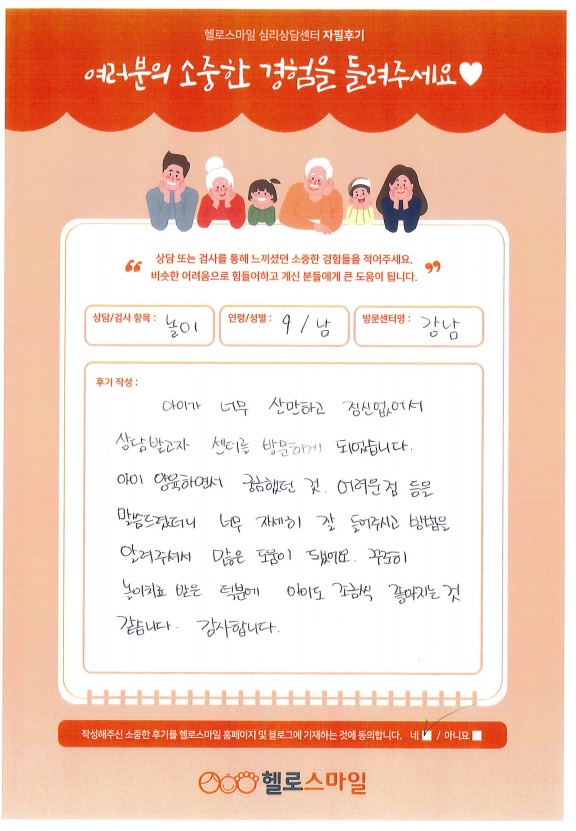 헬로스마일 심리상담센터 자필후기
여러분의 소중한 경험을 들려주세요♥
“ 상담 또는 검사를 통해 느끼셨던 소중한 경험들을 적어주세요.
비슷한 어려움으로 힘들어하고 계신 분들에게 큰 도움이 됩니다. ”
상담/검사 항목 : 놀이 연령/성별 : 9 / 남 방문센터명 : 강남
후기 작성 :
아이가 너무 산만하고 정신없어서
상담받고자 센터를 방문하게 되었습니다.
아이 양육하면서 궁금했던 것. 어려운점 등을
말씀드렸더니 너무 자세히 잘 들어주시고 방법을
알려주셔서 많은 도움이 됐어요. 꾸준히
놀이치료 받은 덕분에 아이도 조금씩 좋아지는 것
같습니다. 감사합니다.
작성해주신 소중한 후기를 헬로스마일 홈페이지 및 블로그에 기재하는 것에 동의합니다. 네 / 아니요
헬로스마일